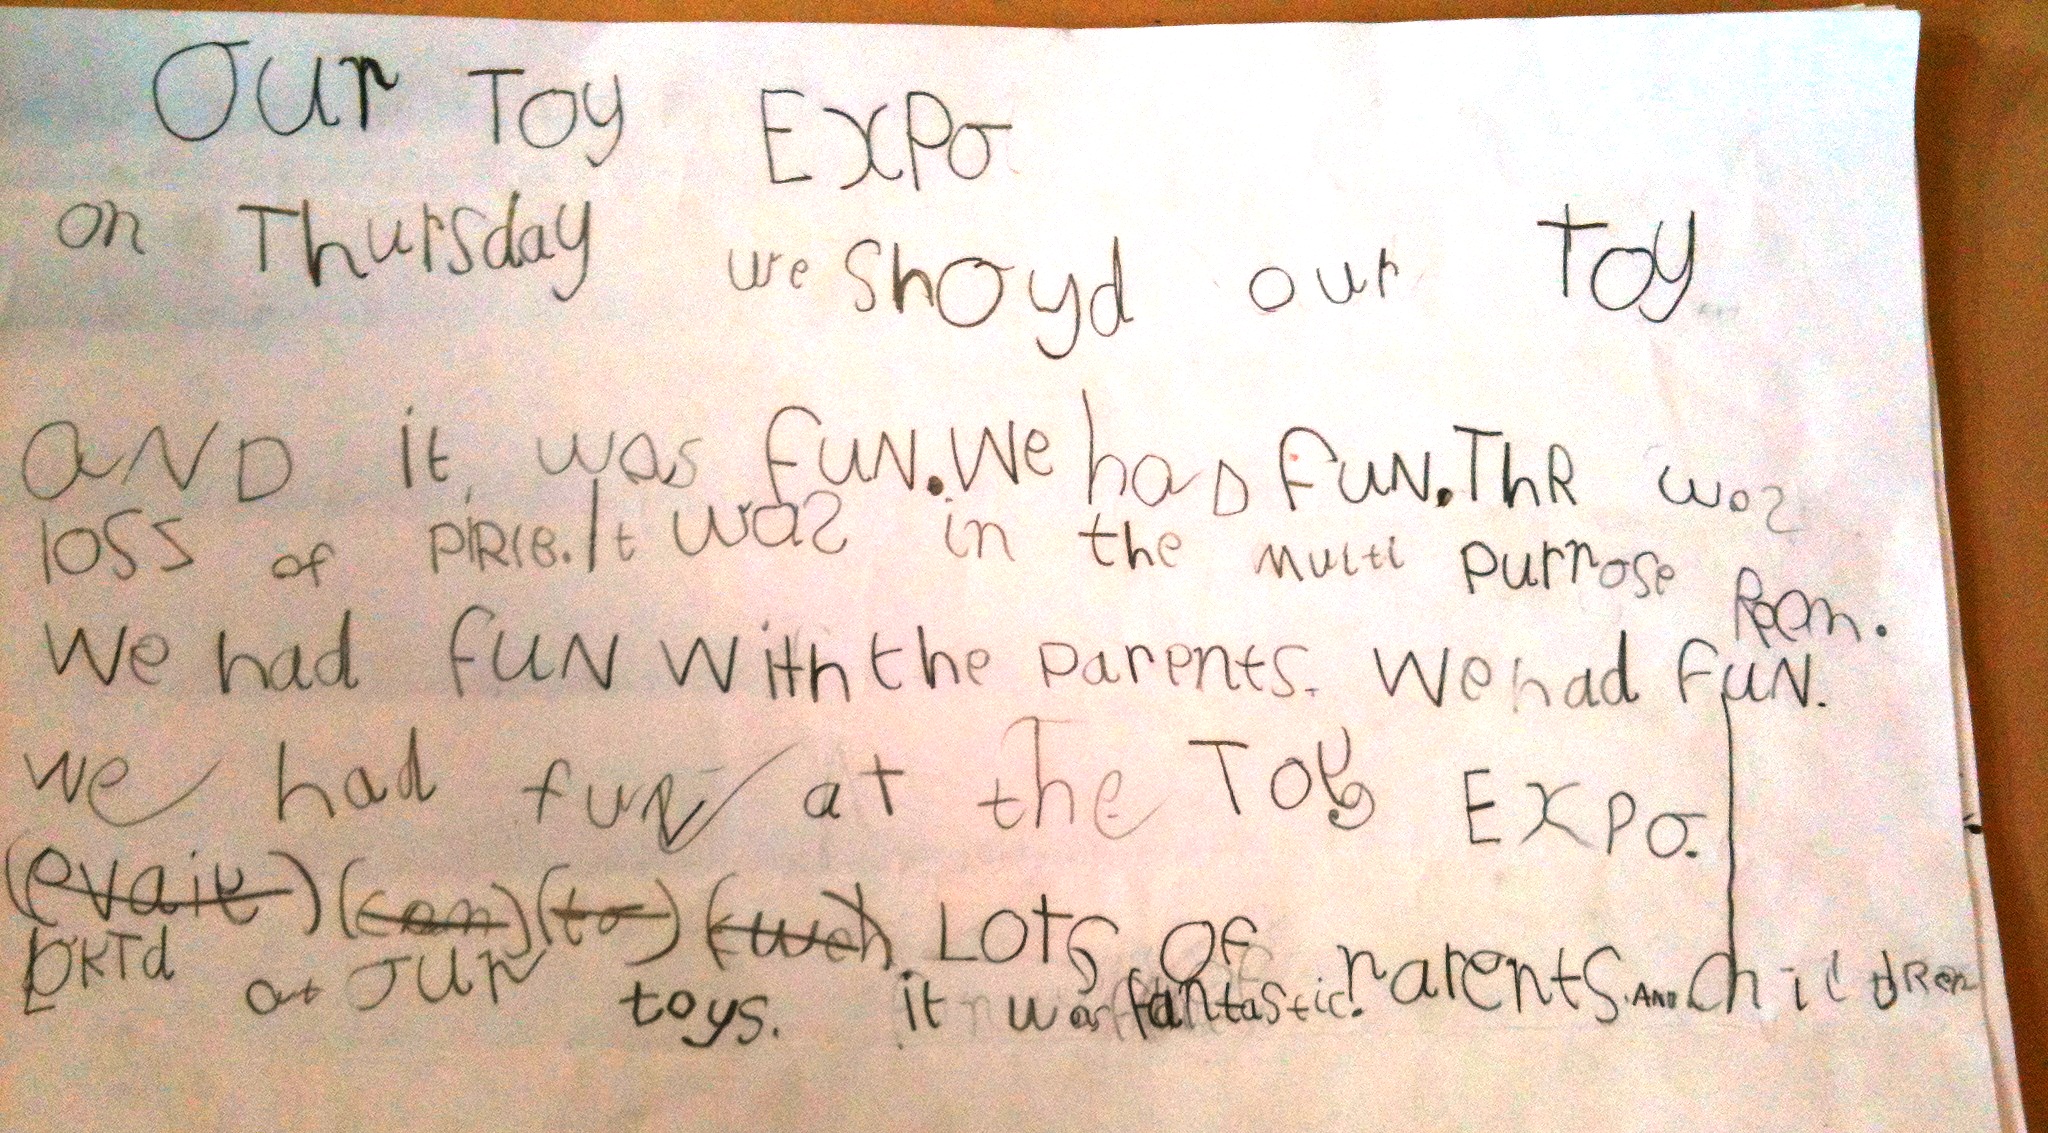 Our Toy Expo
on Thursday we shoyd our Toy
aND it was fuN. We haD fuN. ThR woz
loss of PiRlB. It woz in the multi purrose Room.
We had fuN With the parents. We had fuN.
we had fun at the Toy Expo.
(evaie) (can) (to) (weh) Lots of parents. AND childRen
bKTd at Jur toys. it was fantastic.